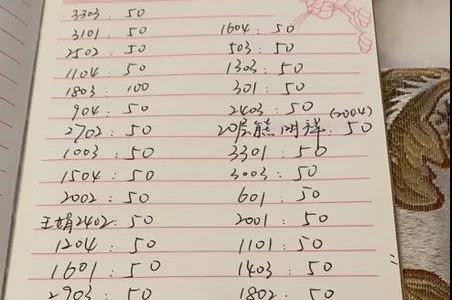 3303 : 50
3101 : 50
2502 : 50
1104 : 50
1803 : 100
904 : 50
2702 : 50
1003 : 50
1504 : 50
2002 : 50
王娟2402 : 50
1204 : 50
1601 : 50
2903 : 50
1604 : 50
503 : 50
1303 : 50
301 : 50
2403 : 50
(2004)
20层熊明祥 : 50
3301 : 50
3003 : 50
601 : 50
2001 : 50
1101 : 50
1403 : 50
1802 : 50